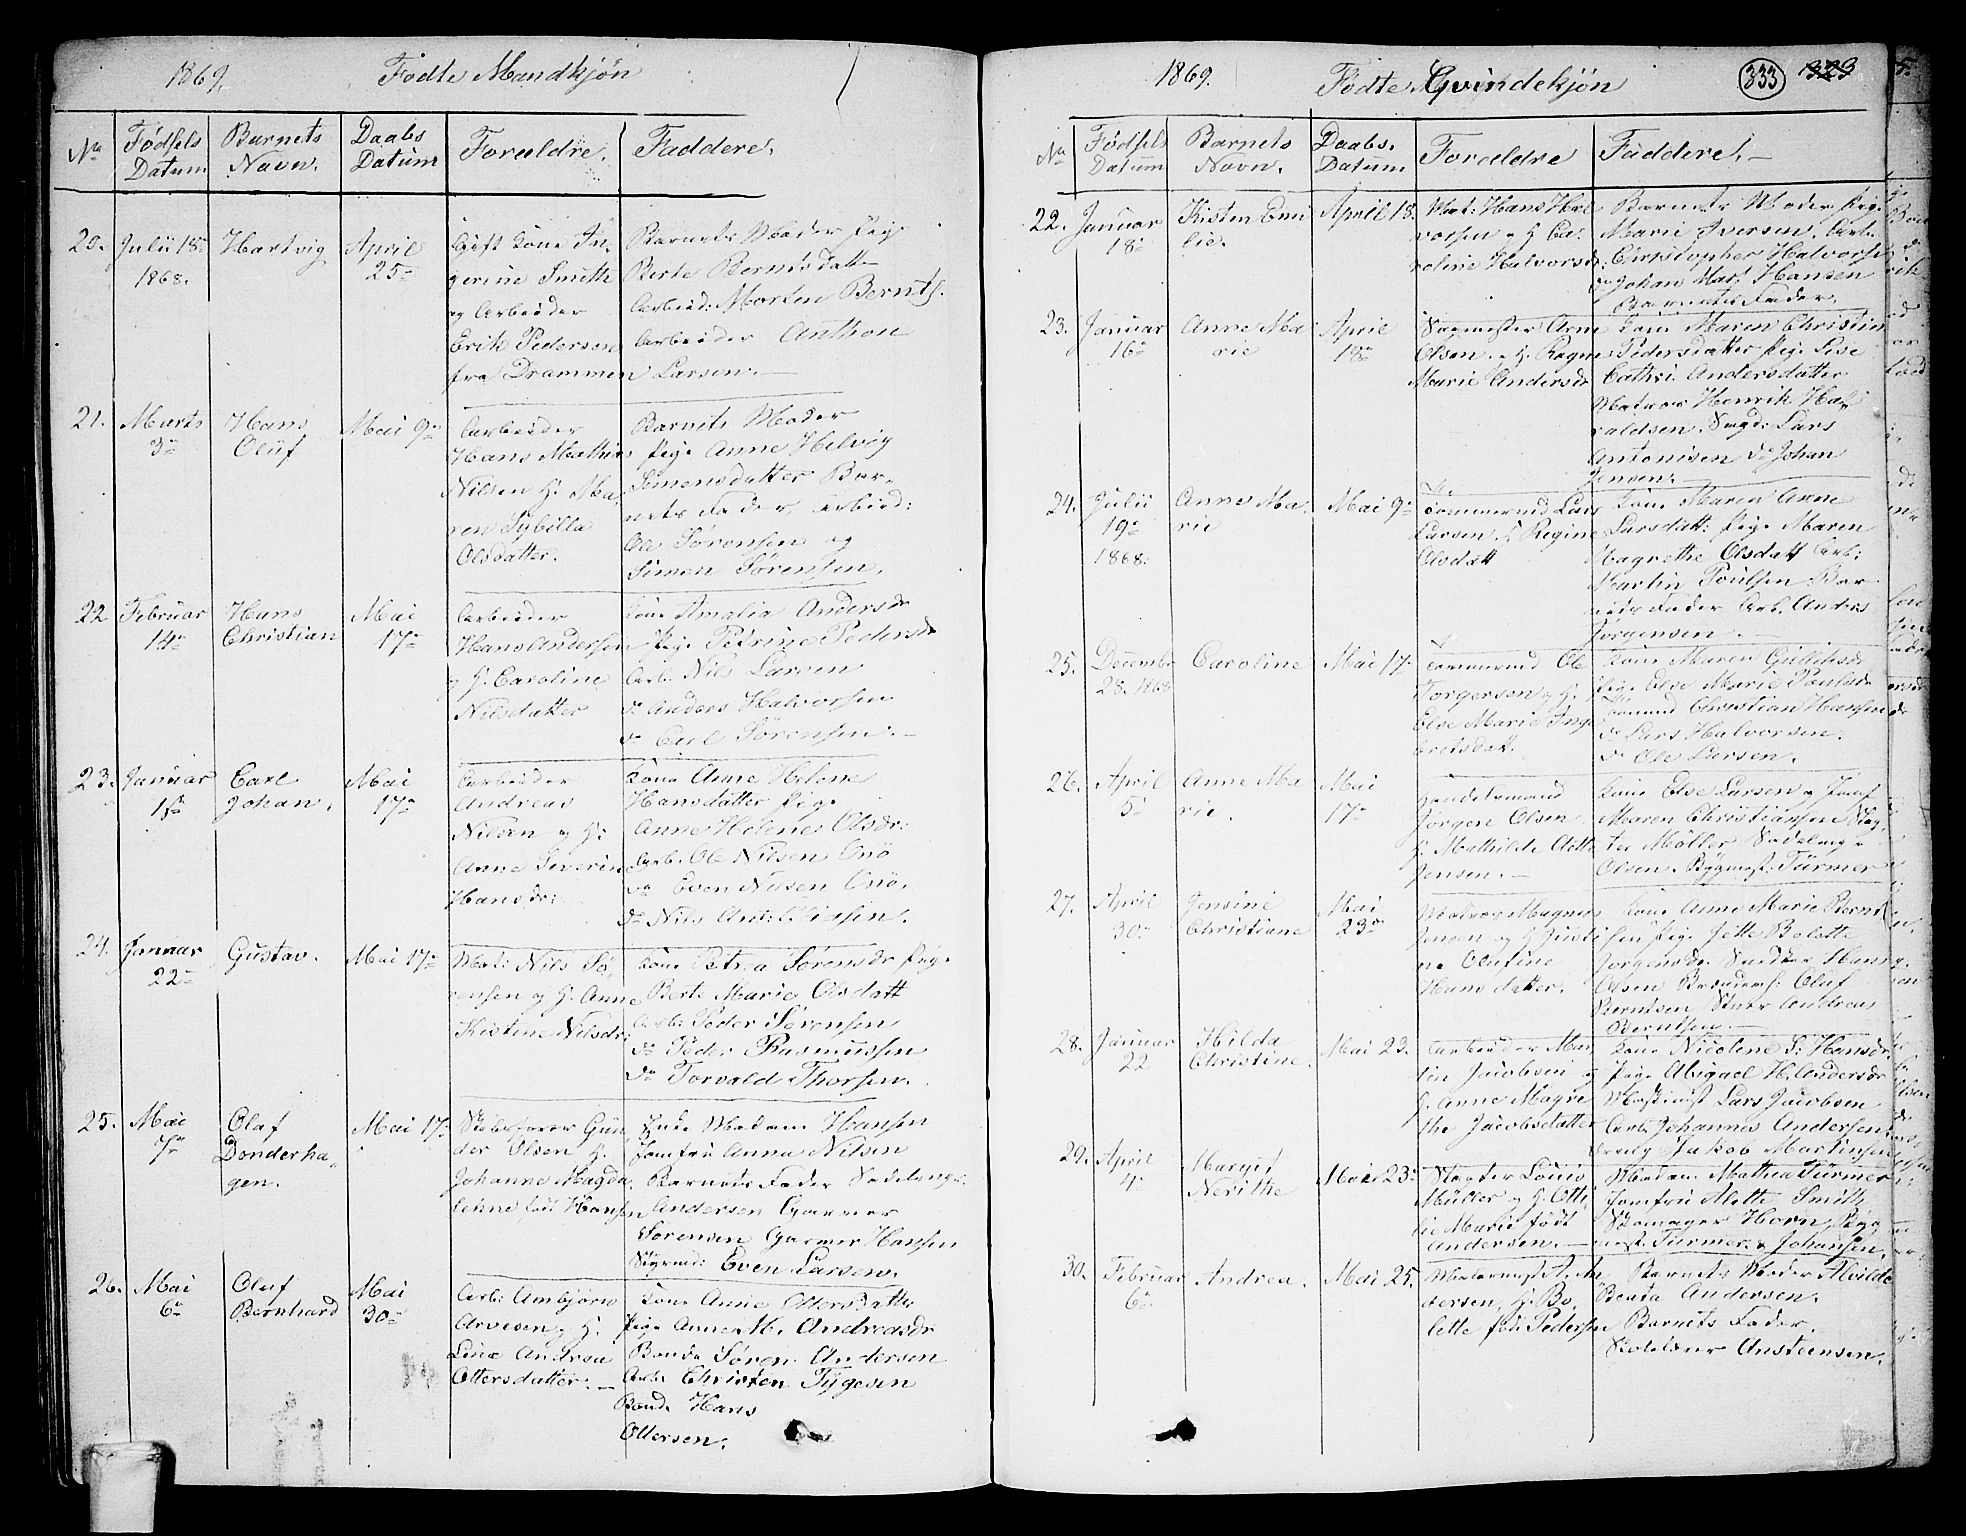 1869. Fødte Mandkjön
No Fødsels Datum Barnets Navn. Daabs Datum Forældre. Faddere.
20. Julii 18de 1868. Hartvig April 25de
Gift Kone In-
gerine Smith
og Arbeider
Erik Pedersen
fra Drammen
Barnets Moder Pige
Berte Berntsdatte
Arbeid: Morten Bernts.
Arbeider Anthon
Larsen.
21. Marts 3de Hans Oluf Mai 9de
Arbeider
Hans Mathias
Nilsen H. Ma-
ren Sybilla
Olsdatter.
Barnets Moder
Pige Anne Helvig
Simensdatter Bar-
nets Fader, Arbeid:
Ole Sørensen og
Simen Sørensen.
22 Februar 14de Hans Christian Mai 17de
Arbeider
Hans Andersen
og H. Caroline
Nilsdatter
Kone Amalia Andersdr
Pige Petrine Pedersdr
Arb. Nils Larsen
do Anders Halvorsen
do Carl Sørensen.
23. Januar Carl Johan. Mai 17de
Arbeider
Andreas
Nilsen og H:
Anne Severin
Hansdr:
Kone Anne Helene
Hansdatter Pige
Anne Helene Olsdr:
Arb. Ole Nilsen Onö
do Even Nilsen Onö.
do Nils Ant: Eliasen.
24. Januar 22de Gustav. Mai 17de
Mat: Nils Sö-
rensen og H. Anne
Kistine Nilsdr:
Kone Petrea Sørensdr Pige
Berte Marie Olsdatt
Arb: Peder Sørensen
do Peder Rasmussen
do Torvald Thorsen.
25. Mai 7de Olaf Donderha-
gen. Mai 17de
Skibsfører Gun-
der Olsen H.
Johanne Magda-
lenne født Hansen
Enke Madam Hansen
Jomfru Anna Nilsen
Barnets Fader Sadelmag:
Andersen Garver
Sørensen Garver Hansen
Styrmd: Even Larsen.
26. Mai 6te Oluf Bernhard Mai 30de
Arb: Ambjörn
Arvesen og H.
Line Andrea
Ottersdatter.
Kone Anne Ottersdatter
Pige Anne M. Andreasdr
Bonde Søren Andersen
Arb: Christen Tygesen
Bonde Hans
Ottersen.
1869. Fødte Qvindekjön 333 323
No Fødsels Datum Barnets Navn. Daabs. Datum Forældre Faddere.
22. Januar 18de Kisten Emi-
lie. April 18.
Mat: Hans Hal-
vorsen og H Ca-
roline Halvorsdr
Barnets Moder Pige
Marie Iversen. Arb.
Christopher Halvorse
do Johan Mat. Hansen
Barnets Fader.
23. Januar 16de Anne Ma-
rie April 18de
Sagmester Arne
Olsen og H. Ragne
Marie Andersdr
Kone Maren Christin
Pedersdatter Pige Lise
Cathri. Andersdatter
Matros Henrik Ha-
raldsen. Sagd: Lars
Antonisen do Johan
Jensen.
24. Julii 19de 1868. Anne Ma-
rie Mai 9de
Tømmermd Lars
Larsen H Regine
Olsdatt
Kone Maren Anne
Larsdatt: Pige Maren
Magrethe Olsdatt Arb:
Martin Poulsen Bar-
nets Fader Arb. Anders
Jørgensen.
25. Decembr 28. 1868 Caroline Mai 17de
Tømmermd Ole
Torgersen og H.
Else Marie Inge-
bretsdatt.
Kone Maren Gulliksdr
Pige Else Marie Poulsdr
Tömmd Christian Hansen
do Lars Halvorsen.
do Ole Larsen.
26. April 5te Anne Ma-
rie. Mai 17de
Handelsmand
Jørgen Olsen
H. Mathilde Aette
Jensen.
Kone Else Larsen og Jomf
Maren Christiansen Slag-
ter Møller Sadelmag-
Olsen. Bygmest: Türmer
27. April 30te Jensine Christiane Mai 23de
Matros Magnus
Jensen og H Justi-
ne Olufine
Hansdatter.
Kone Anne Marie Bernt-
sen Pige Jette Bolette
Jørgensdr. Snedker Hans
Olsen Oluf
Berntsen Andreas
Berntsen.
28. Januar 22 Hilda Christine. Mai 23.
Arbeider Mar-
tin Jacobsen og
H. Anne Magre-
the Jacobsdatter
Kone Nicoline S. Hansdr.
Pige Abigael H. Andersdr
Maskinist Lars Jacobsen
Arb: Johannes Andersen
Jakob Martinsen
29. April 4de Margit Nerithe Mai 23de
Slagter Louis
Müller og H. Otti-
lie Marie født
Andersen.
Madam Mathea Türmer
Jomfru Alette Smith
Skomager Horn, Byg-
mest. Türmer. & Johansen.
30. Februar 6te Andrea. Mai 25.
Malermest A. An-
dersen, H. Bo-
lette fød: Pedersen
Barnets Moder Alvilde
Benta Andersen.
Barnets Fader.
Skolelærer Anstensen.